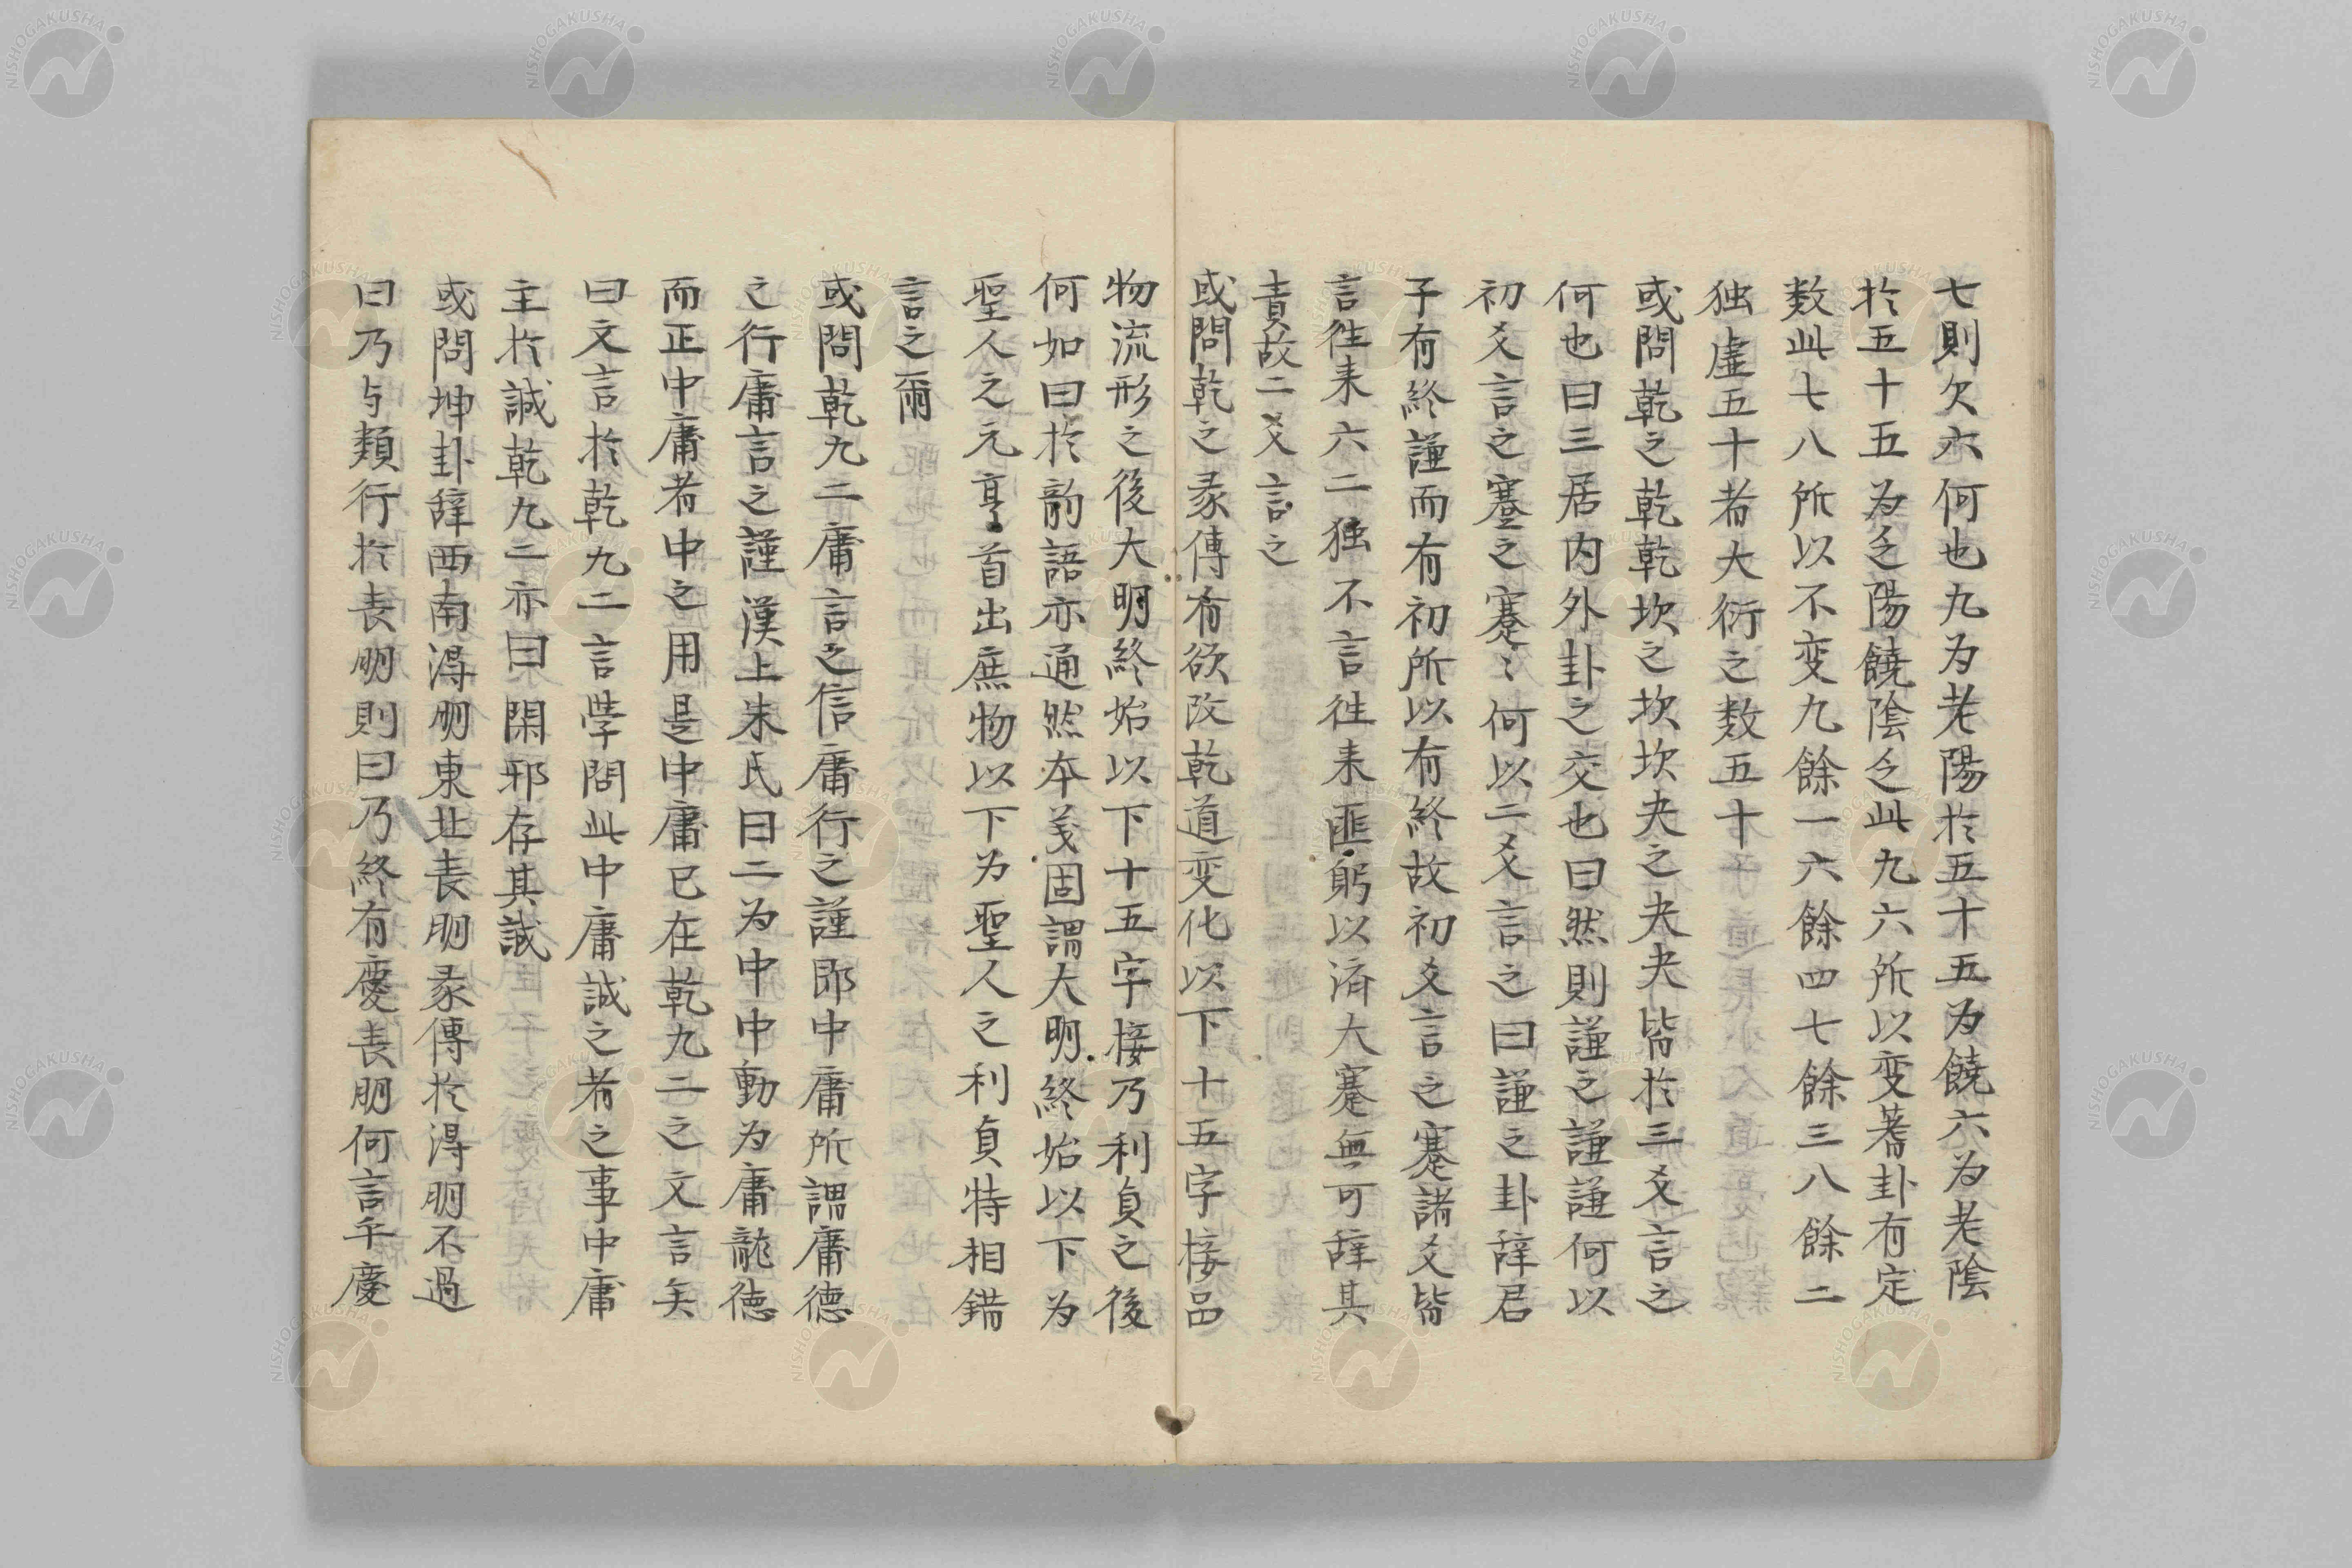 七則欠六何也九为老陽於五十五为饒六为老陰
於五十五为乏陽饒陰乏此九六所以变蓍卦有定
数此七八所以不变九餘一六餘四七餘三八餘二
独虚五十者大衍之数五十
或問乾之乾乾坎之坎坎夬之夬夬皆於三爻言之
何也曰三居内外卦之交也曰然則謙之謙謙何以
初爻言之蹇之蹇〻何以二爻言之曰謙之卦辞君
子有終謙而有初所以有終故初爻言之蹇諸爻皆
言徃来六二独不言徃来匪躬以済大蹇無可辞其
責故二爻言之
或問乾之彖傳有欲改乾道变化以下十五字接品
物流形之後大明終始以下十五字接乃利貞之後
何如曰於韵語亦通然本義固謂大明終始以下为
聖人之元亨首出庶物以下为聖人之利貞特相錯
言之爾
或問乾九二庸言之信庸行之謹即中庸所謂庸德
之行庸言之謹漢上朱氏曰二为中中動为庸龍徳
而正中庸者中之用是中庸已在乾九二之文言矣
曰文言於乾九二言学問此中庸誠之者之事中庸
主於誠乾九二亦曰閑邪存其誠
或問坤卦辞西南得朋東北丧朋彖傳於得朋不過
曰乃与類行於丧朋則曰乃終有慶丧朋何言乎慶
NISHOGAKUSHA